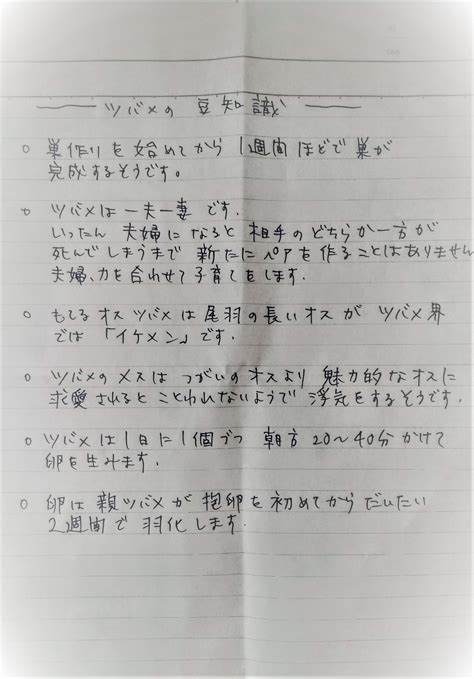 ツバメの 豆知識
○ 巣作りを始めてから1週間ほどで巣が
完成するそうです。
○ ツバメは一夫一妻です。
いったん夫婦になると相手のどちらか一方が
死んでしまうまで新たにペアを作ることはありません
夫婦、力を合わせて子育てをします。
○ もてるオスツバメは尾羽の長いオスがツバメ界
では「イケメン」です。
○ ツバメのメスはつがいのオスより魅力的なオスに
求愛されるとことわれないようで浮気をするそうです。
○ ツバメは1日に1個づつ 朝方20〜40分かけて
卵を生みます.
○ 卵は親ツバメが抱卵を初めてからだいたい
2週間で羽化します.